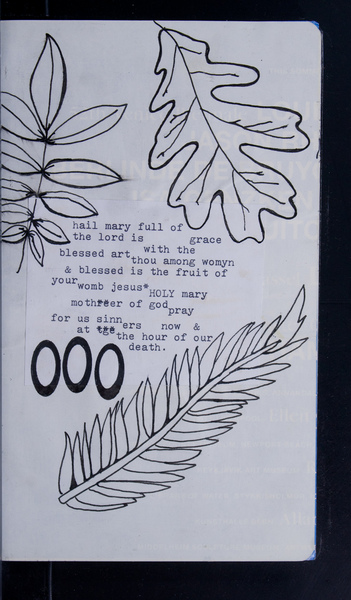 hail mary full of
the lord is grace
blessed art with the
thou among womyn
& blessed is the fruit of
your womb jesus*
HOLY mary
mothreer of god
pray
for us sinn
ers now &
at tge the hour of our
death.
000